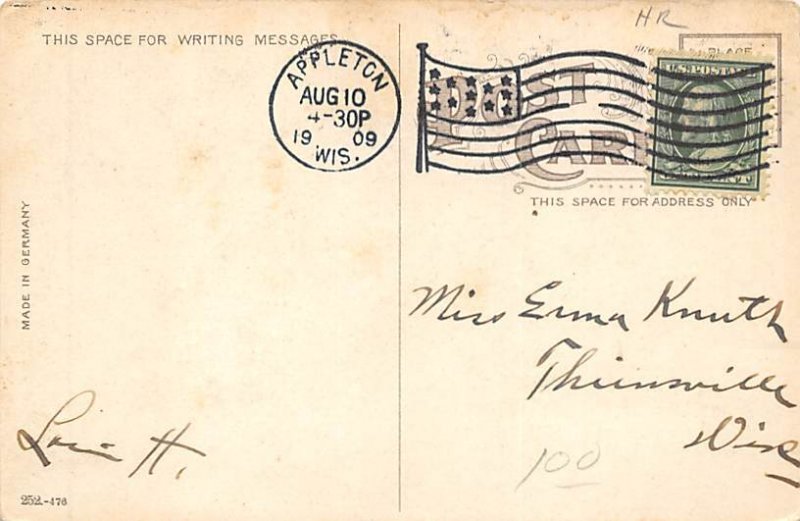 HR
THIS SPACE FOR WRITING MESSAGES
PLACE
APPLETON
AUG 10
4-30P
19 09
WIS.
POST
CARD
U.S. POSTAGE
THIS SPACE FOR ADDRESS ONLY
MADE IN GERMANY
Miss Erma Knuth
Thiensville
Wis
H.
100
252.-476